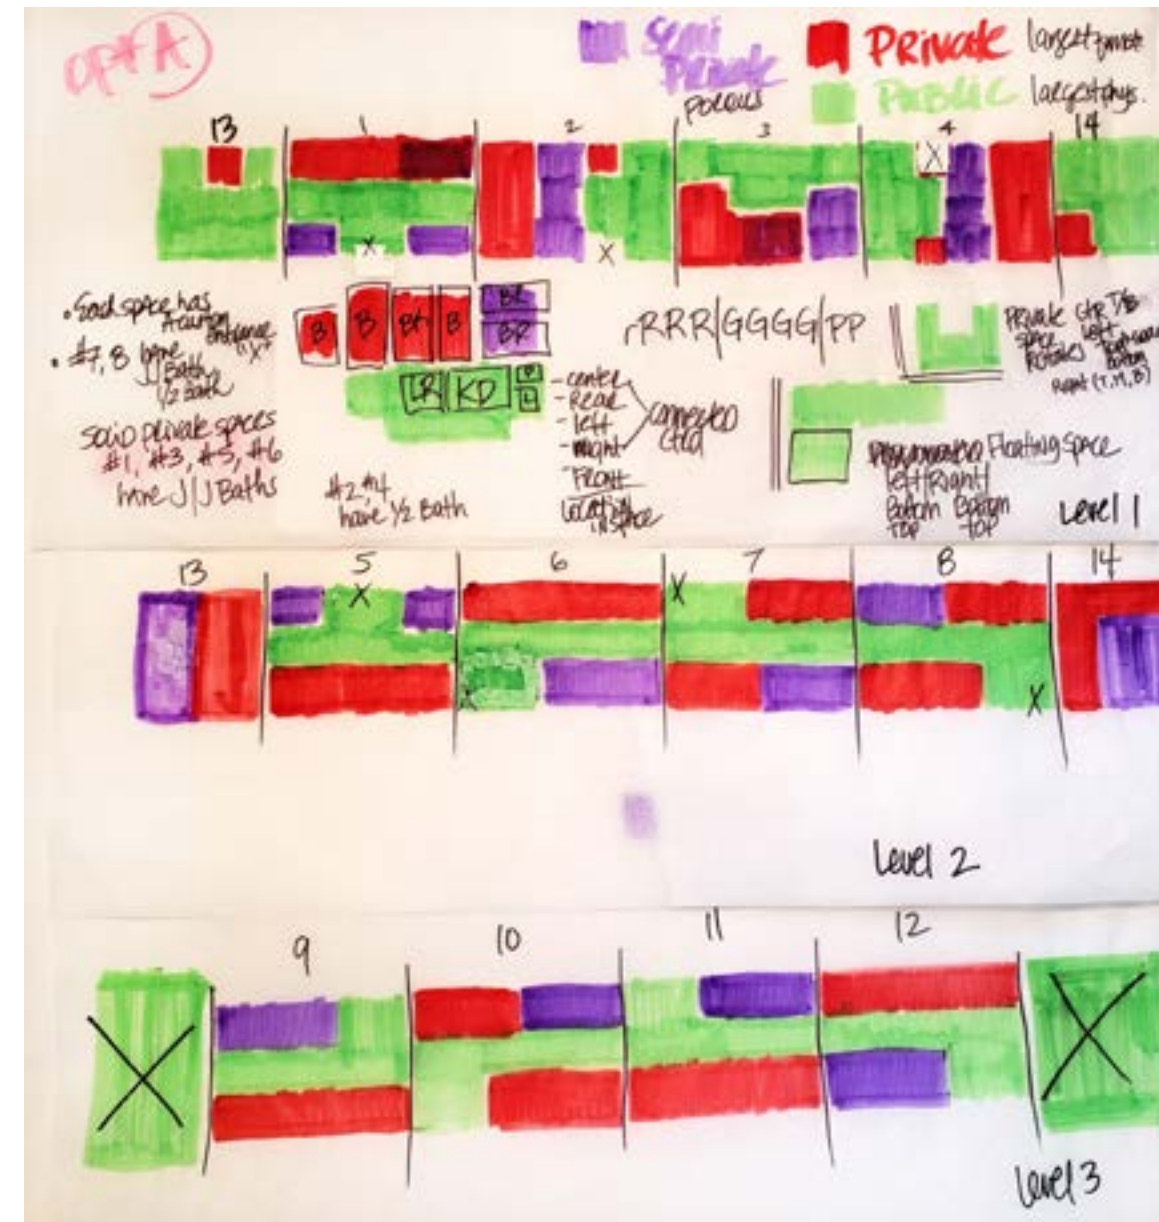 opt A
Semi Private
Porous
Private largest
Public largest phys.
13 1 2 3 4 14
X X X X
• Each space has
"X"
• #7, 8 have
J Bath
1/2 Bath
Solid private spaces
#1, #3, #5, #6
have J/J Baths
B B B BR
BR
LR KD
#2 #4
have 1/2 Bath
- center
- Rear
- left
- Right
- Front
Location
in space
connected
RRR|GGGG|PP
Private Ctr T/B
Space left
Rotates
bottom
Right (T, M, B)
Floating space
left/Right/
Bottom Bottom
TOP TOP
Level 1
13 5 6 7 8 14
X X X X
Level 2
9 10 11 12
X X
Level 3